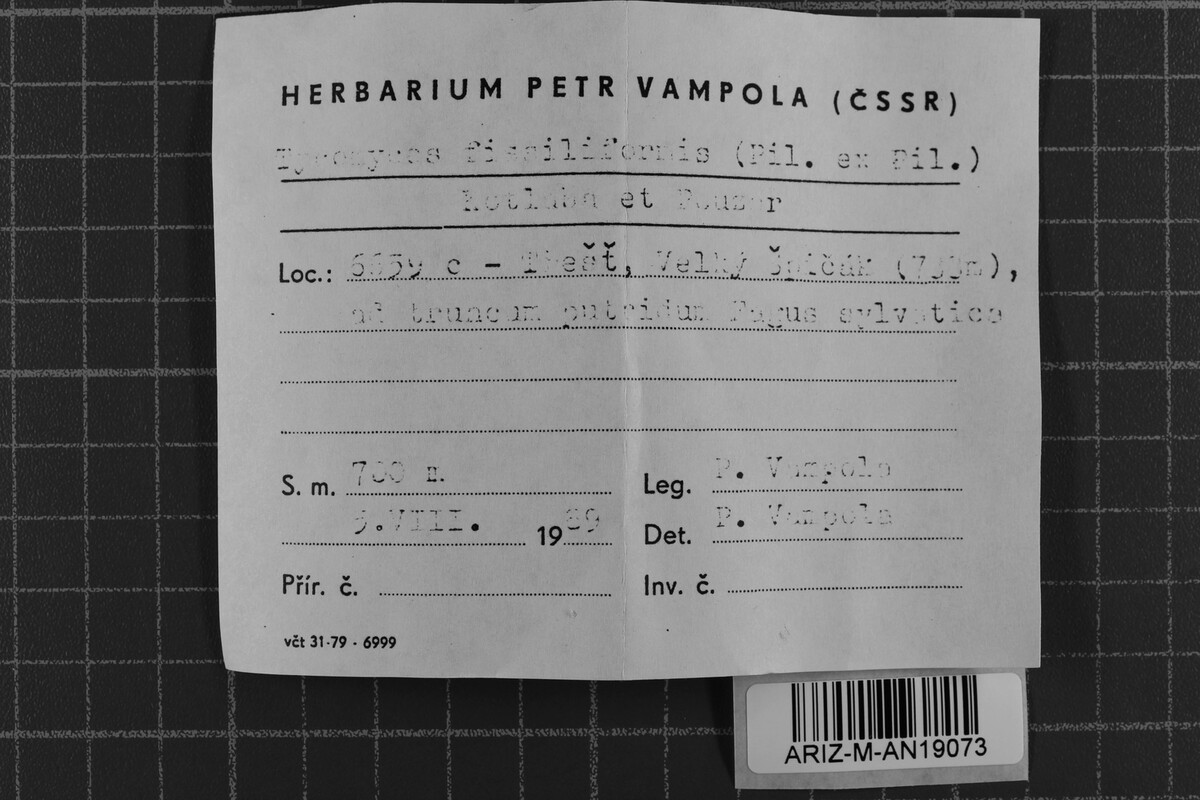 HERBARIUM PETR VAMPOLA (ČSSR)
Tyromyces fissiliformis (Pil. ex Pil.)
Kotlaba et Pouzar
Loc.: 6659 c - Třešť, Velký Špičák (730m),
ad truncum putridum Fagus sylvatica
S. m. 730 m
Leg. P. Vampola
VIII. 1989
Det. P. Vampola
Přír. č.
Inv. č.
včt 31-79 - 6999
ARIZ-M-AN19073